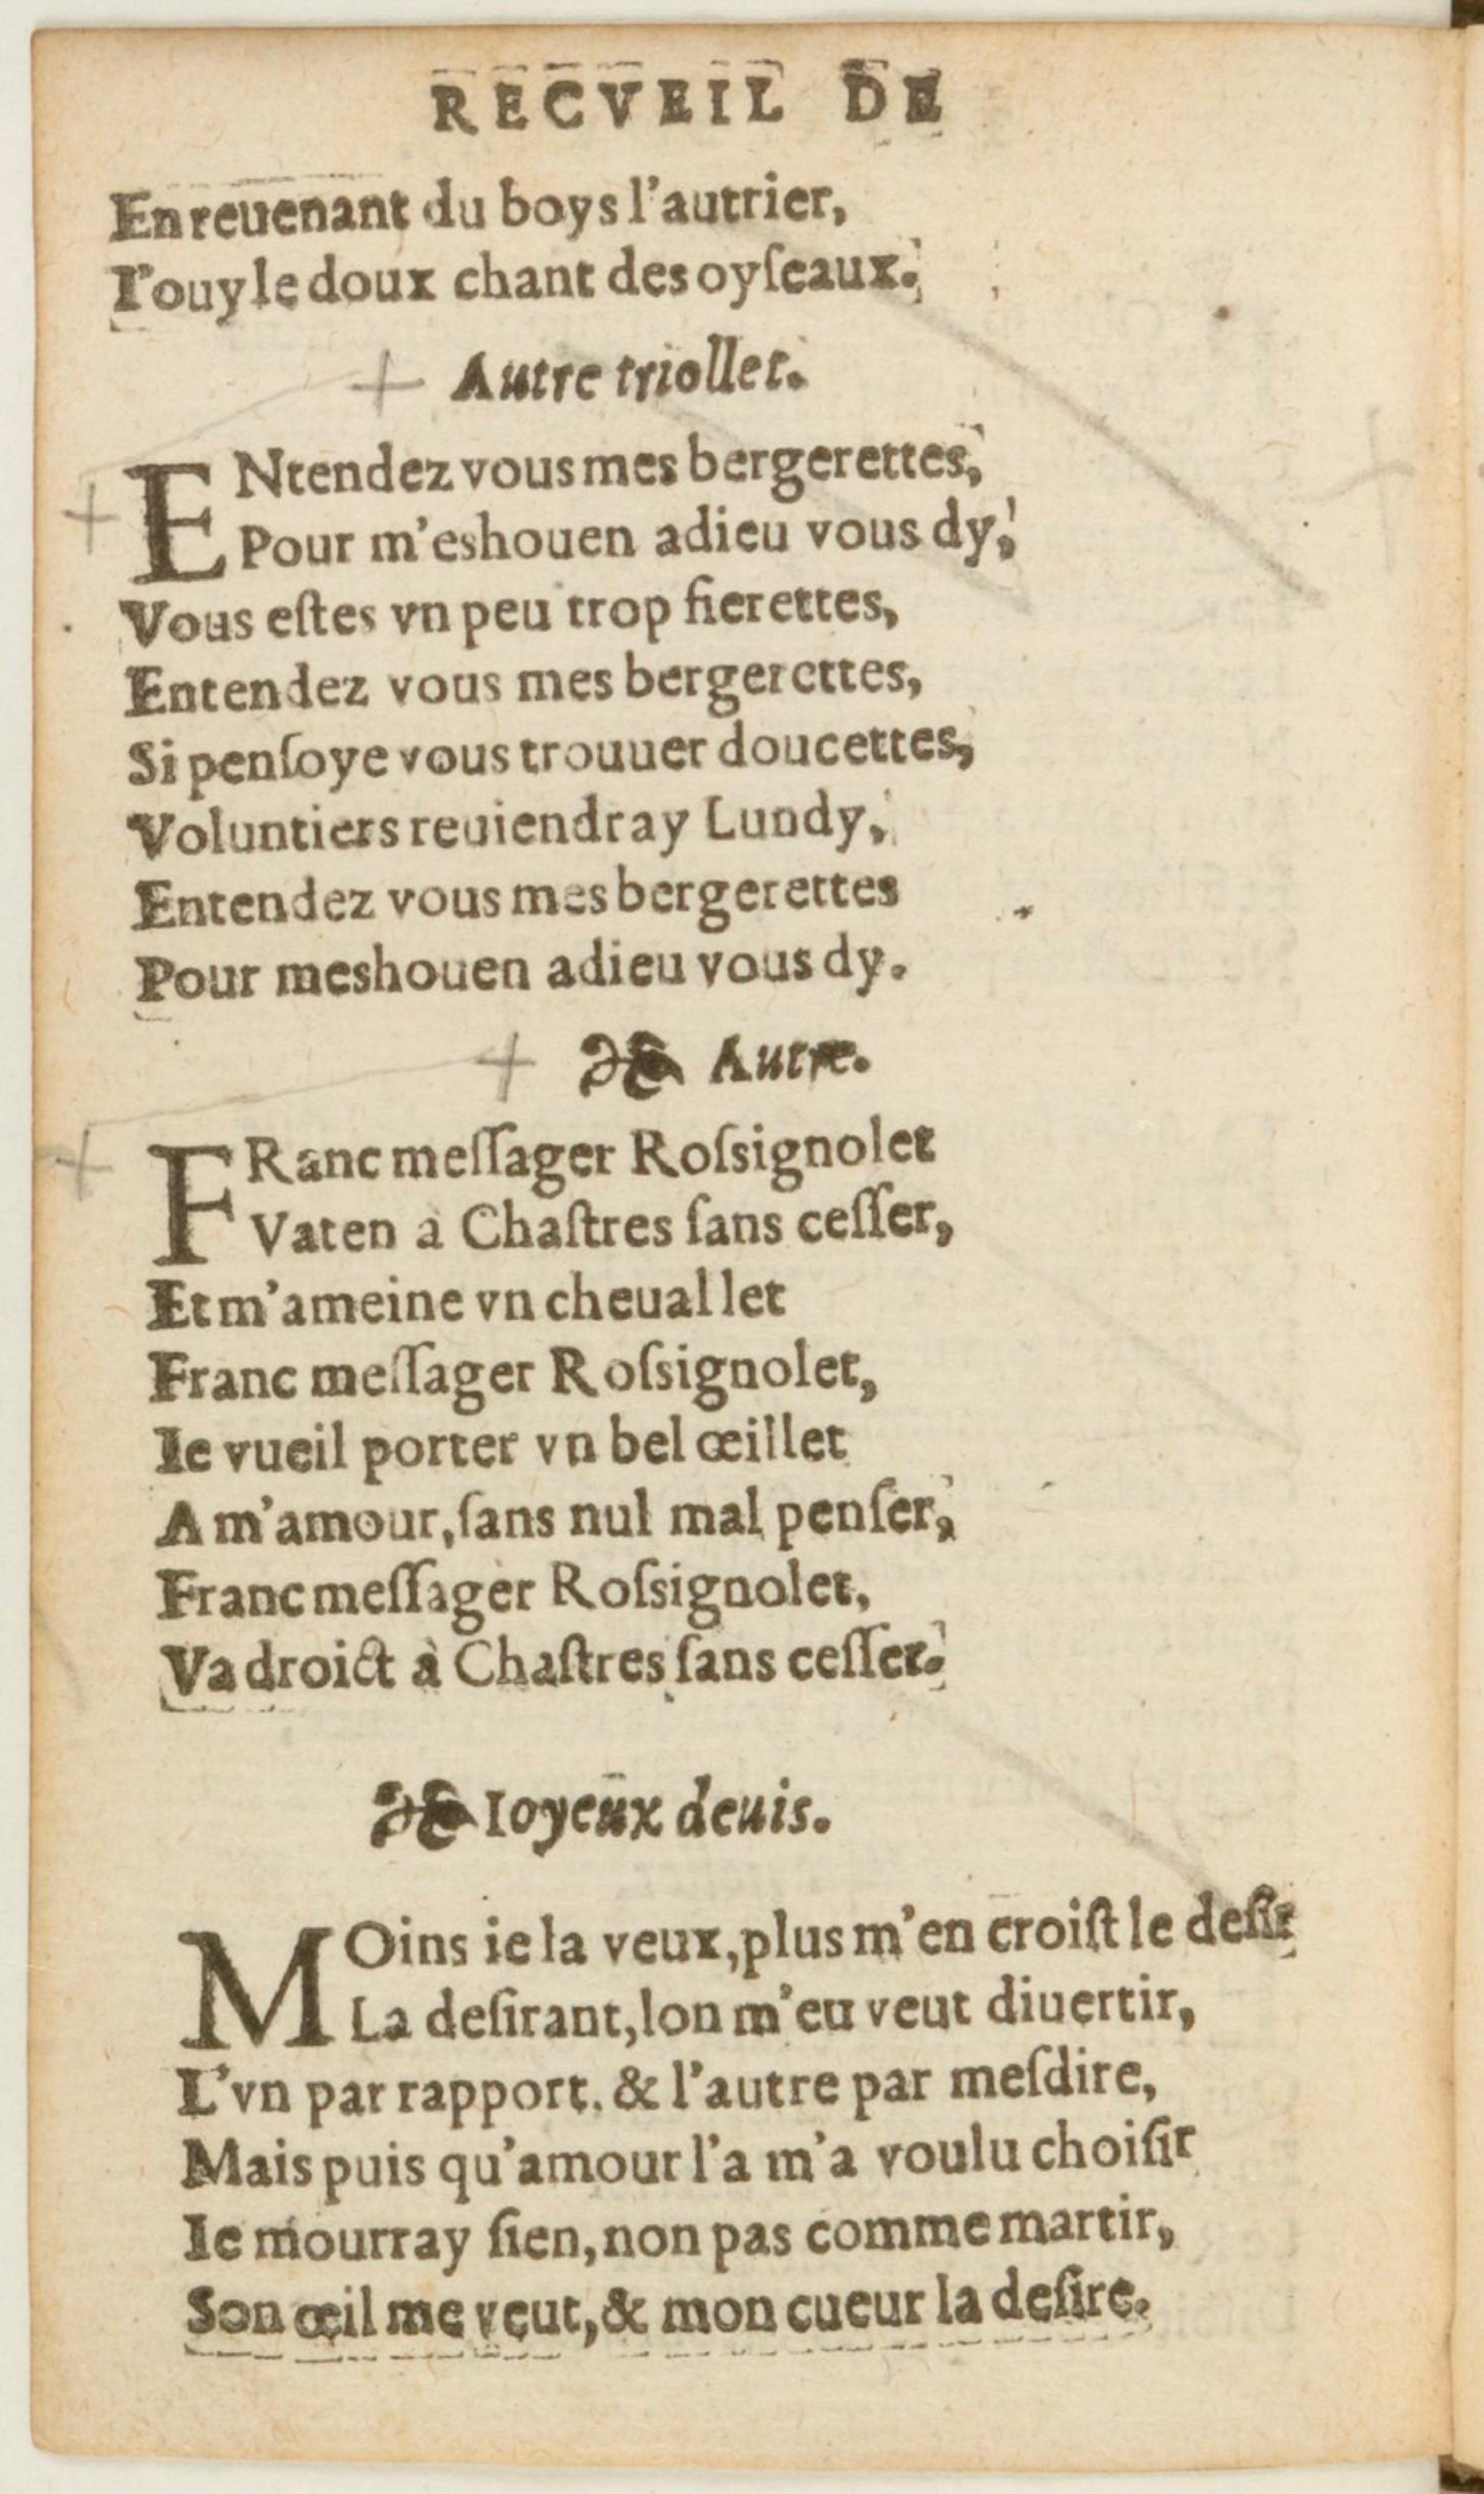 RECVEIL DE
En reuenant du boys l'autrier,
I'ouy le doux chant des oyſeaux.
Autre triollet.
ENtendez vous mes bergerettes,
Pour m'eshouen adieu vous dy,
Vous eſtes vn peu trop fierettes,
Entendez vous mes bergerettes,
Si penſoye vous trouuer doucettes,
Voluntiers reuiendray Lundy,
Entendez vous mes bergerettes
Pour meshouen adieu vous dy.
❧ Autre.
FRanc meſſager Roſsignolet
Vaten a Chaſtres ſans ceſſer,
Et m'ameine vn cheual let
Franc meſſager Roſsignolet,
Ie vueil porter vn bel œillet
A m'amour, ſans nul mal penſer,
Franc meſſager Roſsignolet,
Va droict à Chaſtres ſans ceſſer.
❧ Ioyeux deuis.
MOins ie la veux, plus m'en croiſt le deſir
La deſirant, lon m'eu veut diuertir,
L'vn par rapport. & l'autre par meſdire,
Mais puis qu'amour l'a m'a voulu choiſir
Ie mourray ſien, non pas comme martir,
Son œil me veut, & mon cueur la deſire.